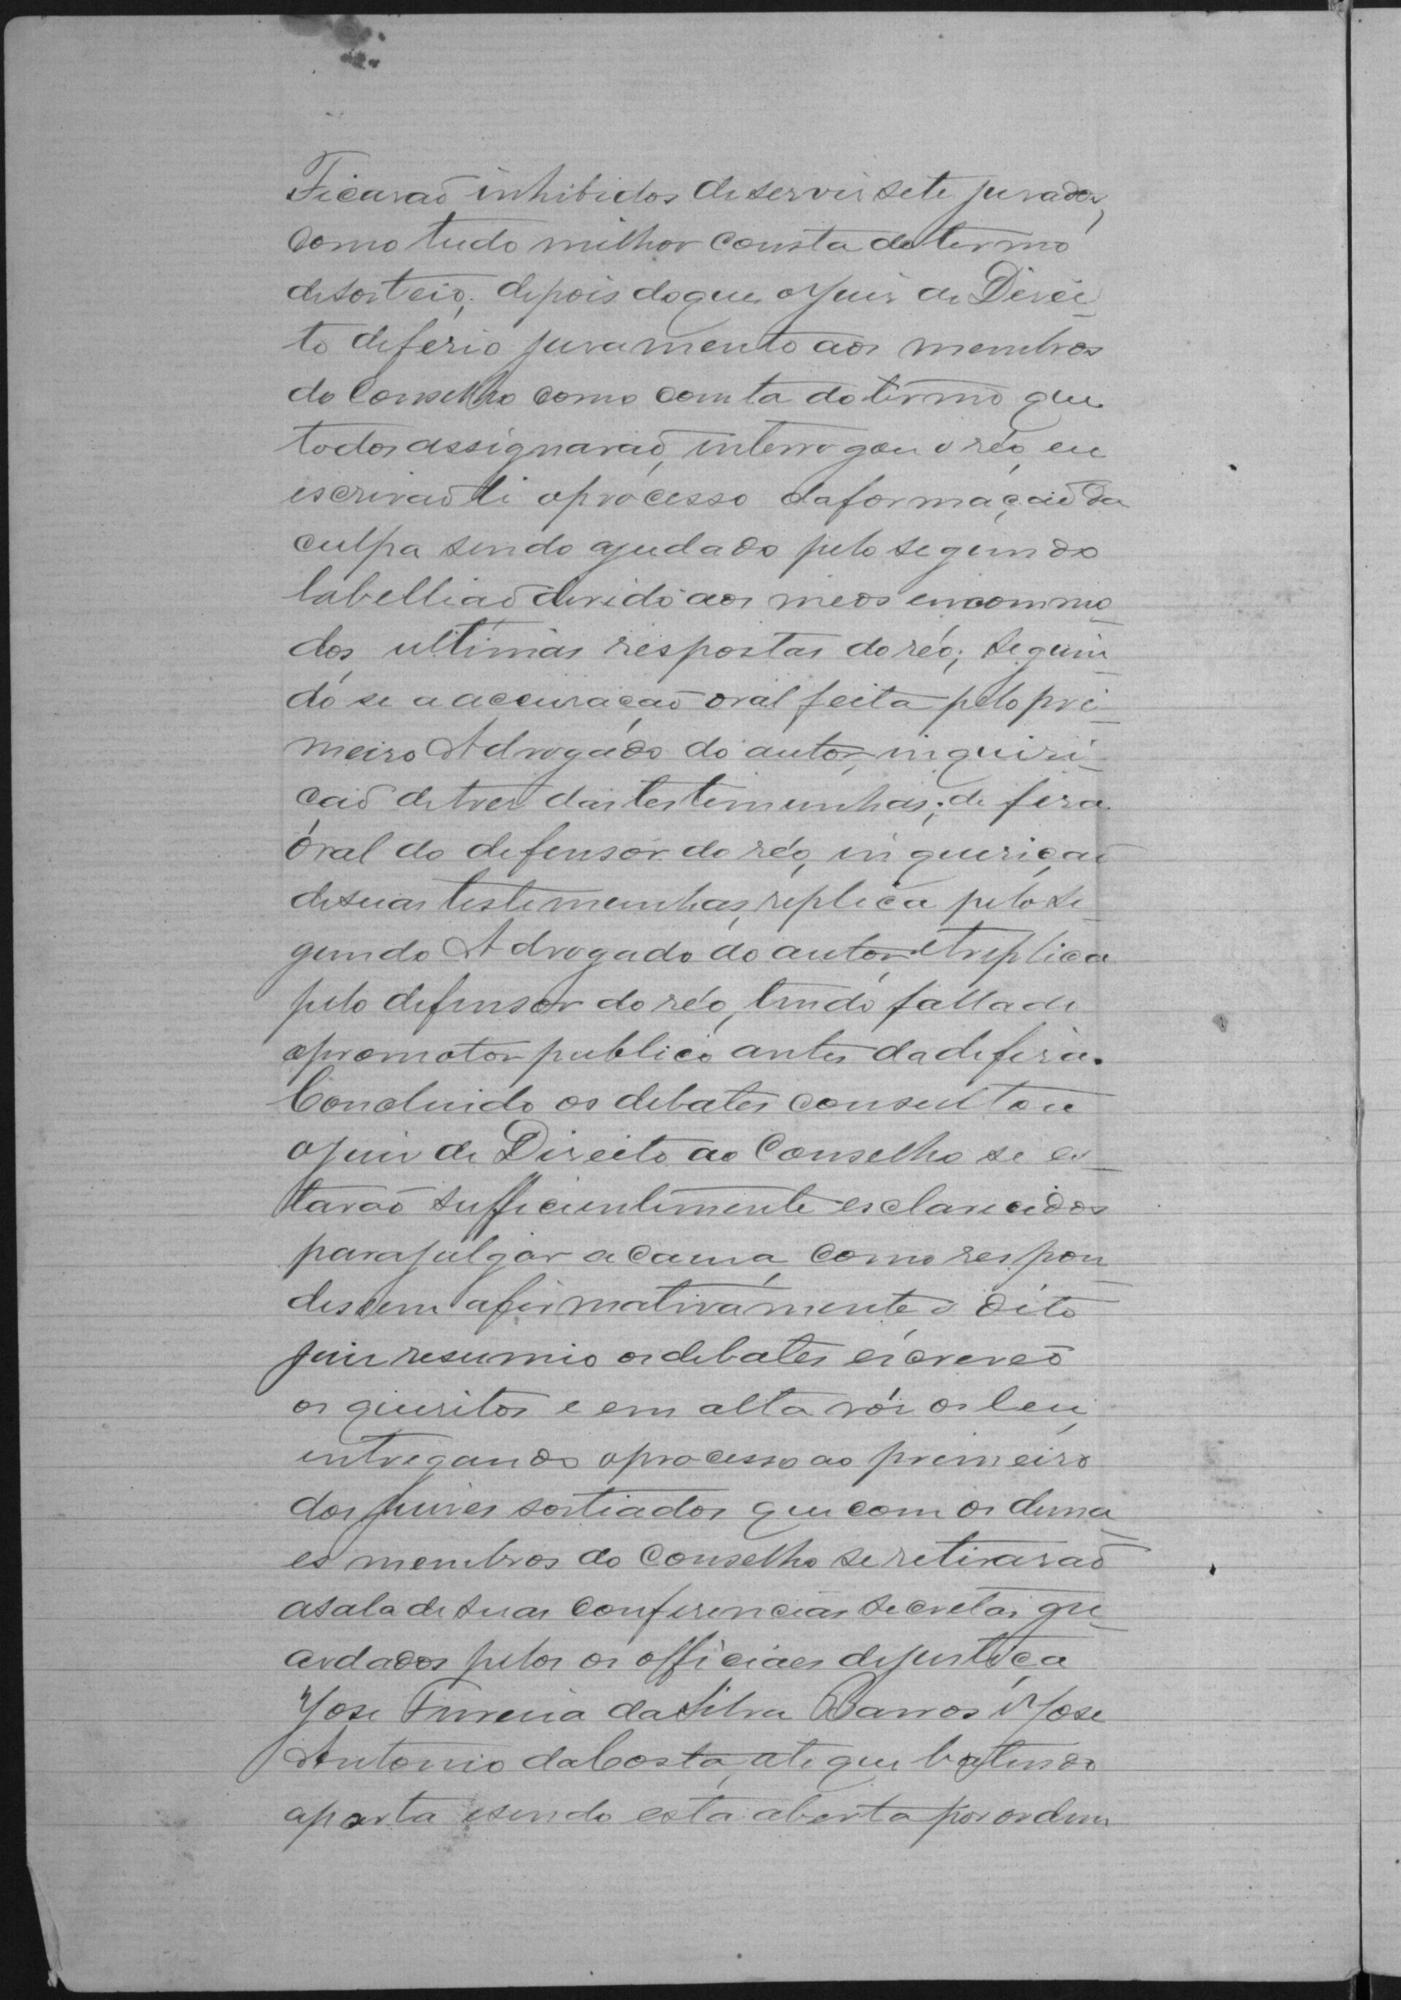 Ficarão inhibidos de servir sete jurados,
como tudo milhor consta do termo
de sorteio, depois do que o Juis de Direi-
to deferio juramento aos membros
do Conselho como consta do termo que
todos assignarão, interrogou o réo, eu
escrivão li o processo da formação da
culpa sendo ajudado pelo segundo
tabellião devido aos meos encommo-
dos, ultimas respostas do réo; seguin-
do se a accusação oral feita pelo pri-
meiro Advogado do autor, inquiri-
ção de tres das testemunhas; defesa
oral do defensor do réo, inquerição
de suas testemunhas, replica pelo se-
gundo Advogado do autor, e treplica
pelo defensor do réo, tendo fallado
o promotor publico antes da defesa.
Concluido os debates consultou
o juis de Direito ao Conselho se es-
tavão sufficientemente esclarecidos
para julgar a causa, como respon-
dessem afirmativamente o dito
juis resumio os debates escreveo
os quesitos e em alta vós os leu,
entregando o processo ao primeiro
dos juises sortiados que com os dema-
es membros do Conselho se retirarão
a sala de suas conferencias secretas gu-
ardados pelos os officiaes de justiça
Jose Ferreira da Silva Barros e Jose
Antonio da Costa, ate que batendo
a porta e sendo esta aberta por ordem